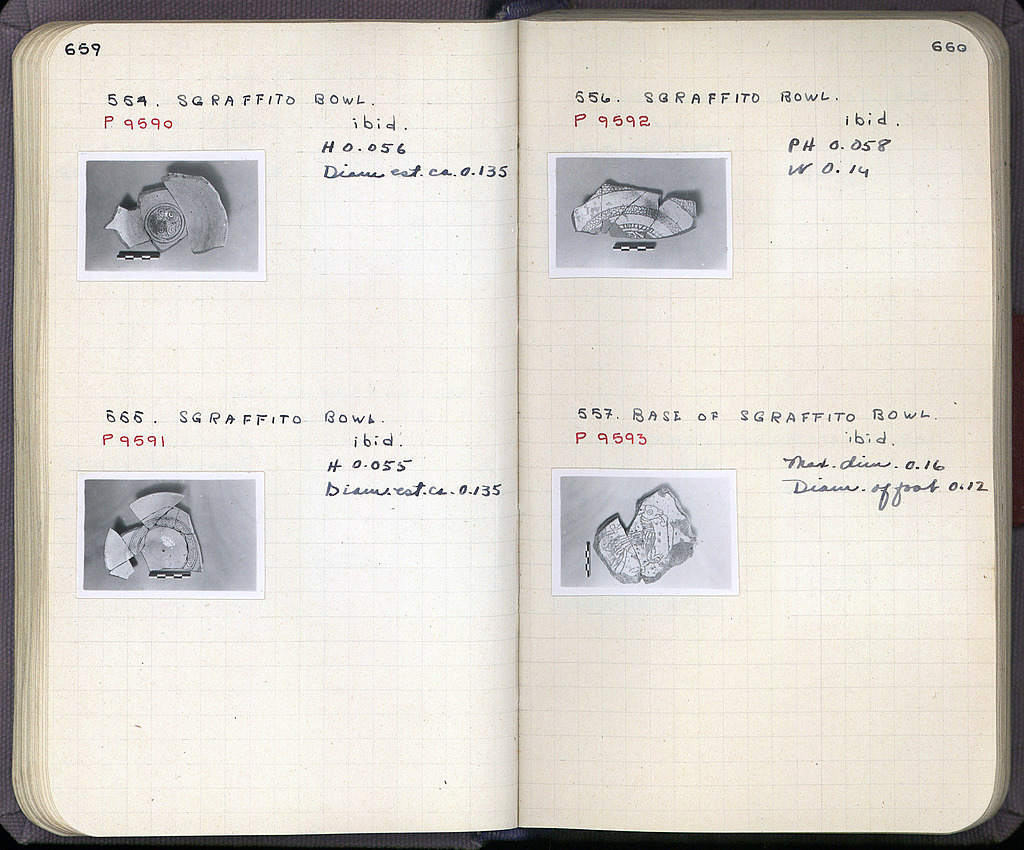 659
554. SGRAFFITO BOWL.
P 9590
ibid.
H 0.056
Diam. est. ca. 0.135
555. SGRAFFITO BOWL.
P 9591
ibid.
H 0.055
Diam. est. ca. 0.135
660
556. SGRAFFITO BOWL.
P 9592
ibid.
PH 0.058
W 0.14
557. BASE OF SGRAFFITO BOWL.
P 9593
ibid.
Max. dim. 0.16
Diam. of foot 0.12